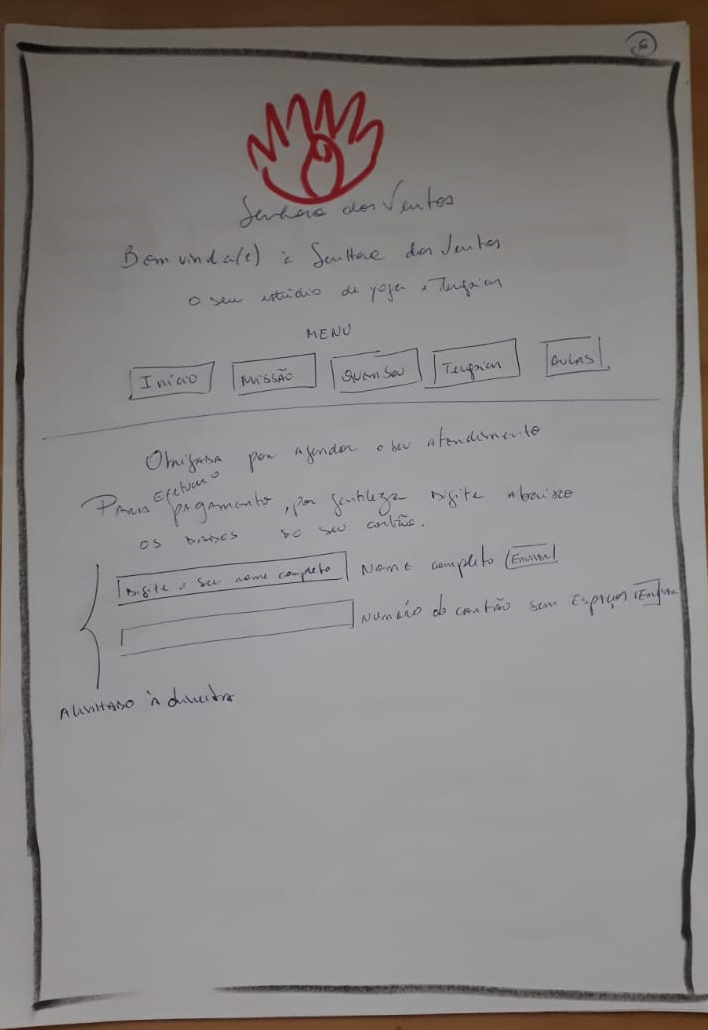 6
Senhora dos Ventos
Bem vinda(e) à Senhora dos Ventos
o seu estúdio de yoga e Terapias
MENU
Início Missão Quem Sou Terapias AULAS
Obrigada por agendar o seu atendimento
Efetuar o
Para pagamento, por gentileza Digite Abaixo
os DADOS do seu cartão.
Digite o seu nome completo Nome completo Enviar
Número do cartão sem Espaços Enviar
ALINHADO à direita